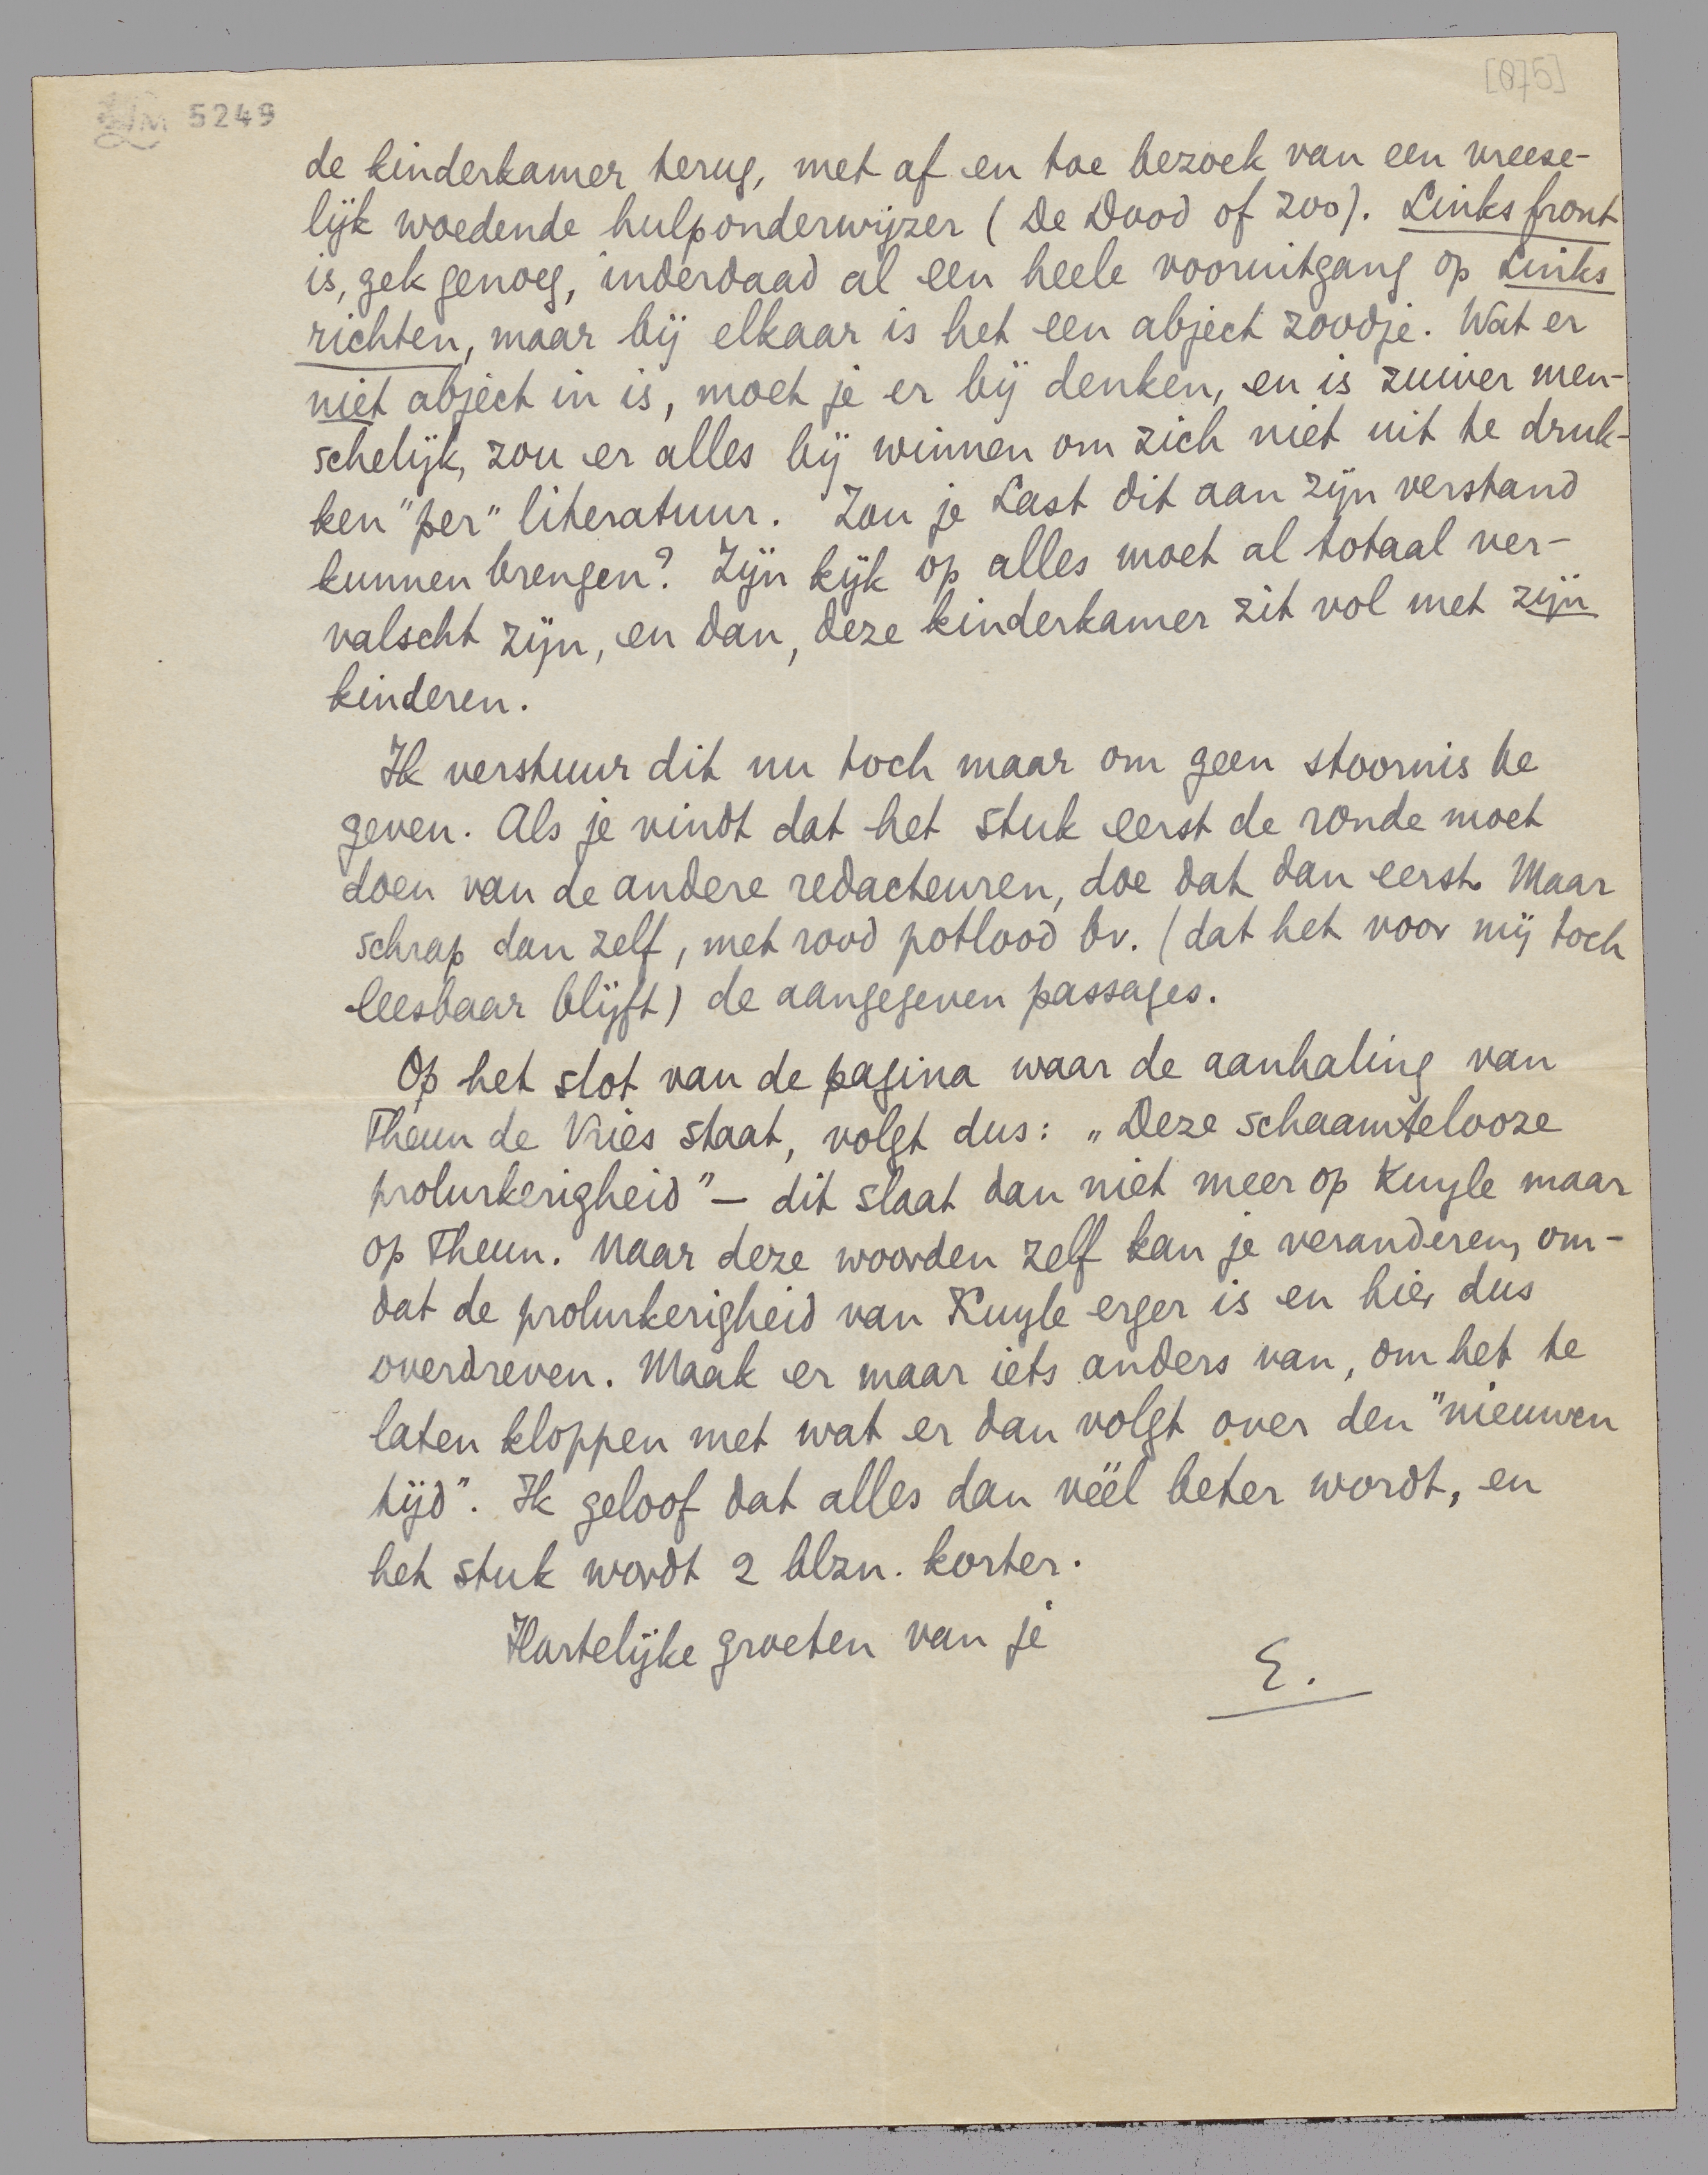 [075]
LM 5249
de kinderkamer terug, met af en toe bezoek van een vreese-
lijk woedende hulponderwijzer (De Dood of zoo). Links front
is, gek genoeg, inderdaad al een heele vooruitgang op Links
richten, maar bij elkaar is het een abject zoodje. Wat er
niet abject in is, moet je er bij denken, en is zuiver men-
schelijk, zou er alles bij winnen om zich niet uit te druk-
ken "per" literatuur. Zou je Last dit aan zijn verstand
kunnen brengen? Zijn kijk op alles moet al totaal ver-
valscht zijn, en dan, deze kinderkamer zit vol met zijn
kinderen.
Ik verstuur dit nu toch maar om geen stoornis te
geven. Als je vindt dat het stuk eerst de ronde moet
doen van de andere redacteuren, doe dat dan eerst. Maar
schrap dan zelf, met rood potlood bv. (dat het voor mij toch
leesbaar blijft) de aangegeven passages.
Op het slot van de pagina waar de aanhaling van
Theun de Vries staat, volgt dus: „Deze schaamtelooze
prolurkerigheid" — dit slaat dan niet meer op Kuyle maar
op Theun. Maar deze woorden zelf kan je veranderen, om-
dat de prolurkerigheid van Kuyle erger is en hier dus
overdreven. Maak er maar iets anders van, om het te
laten kloppen met wat er dan volgt over den "nieuwen
tijd". Ik geloof dat alles dan véél beter wordt, en
het stuk wordt 2 blzn. korter.
Hartelijke groeten van je
E.